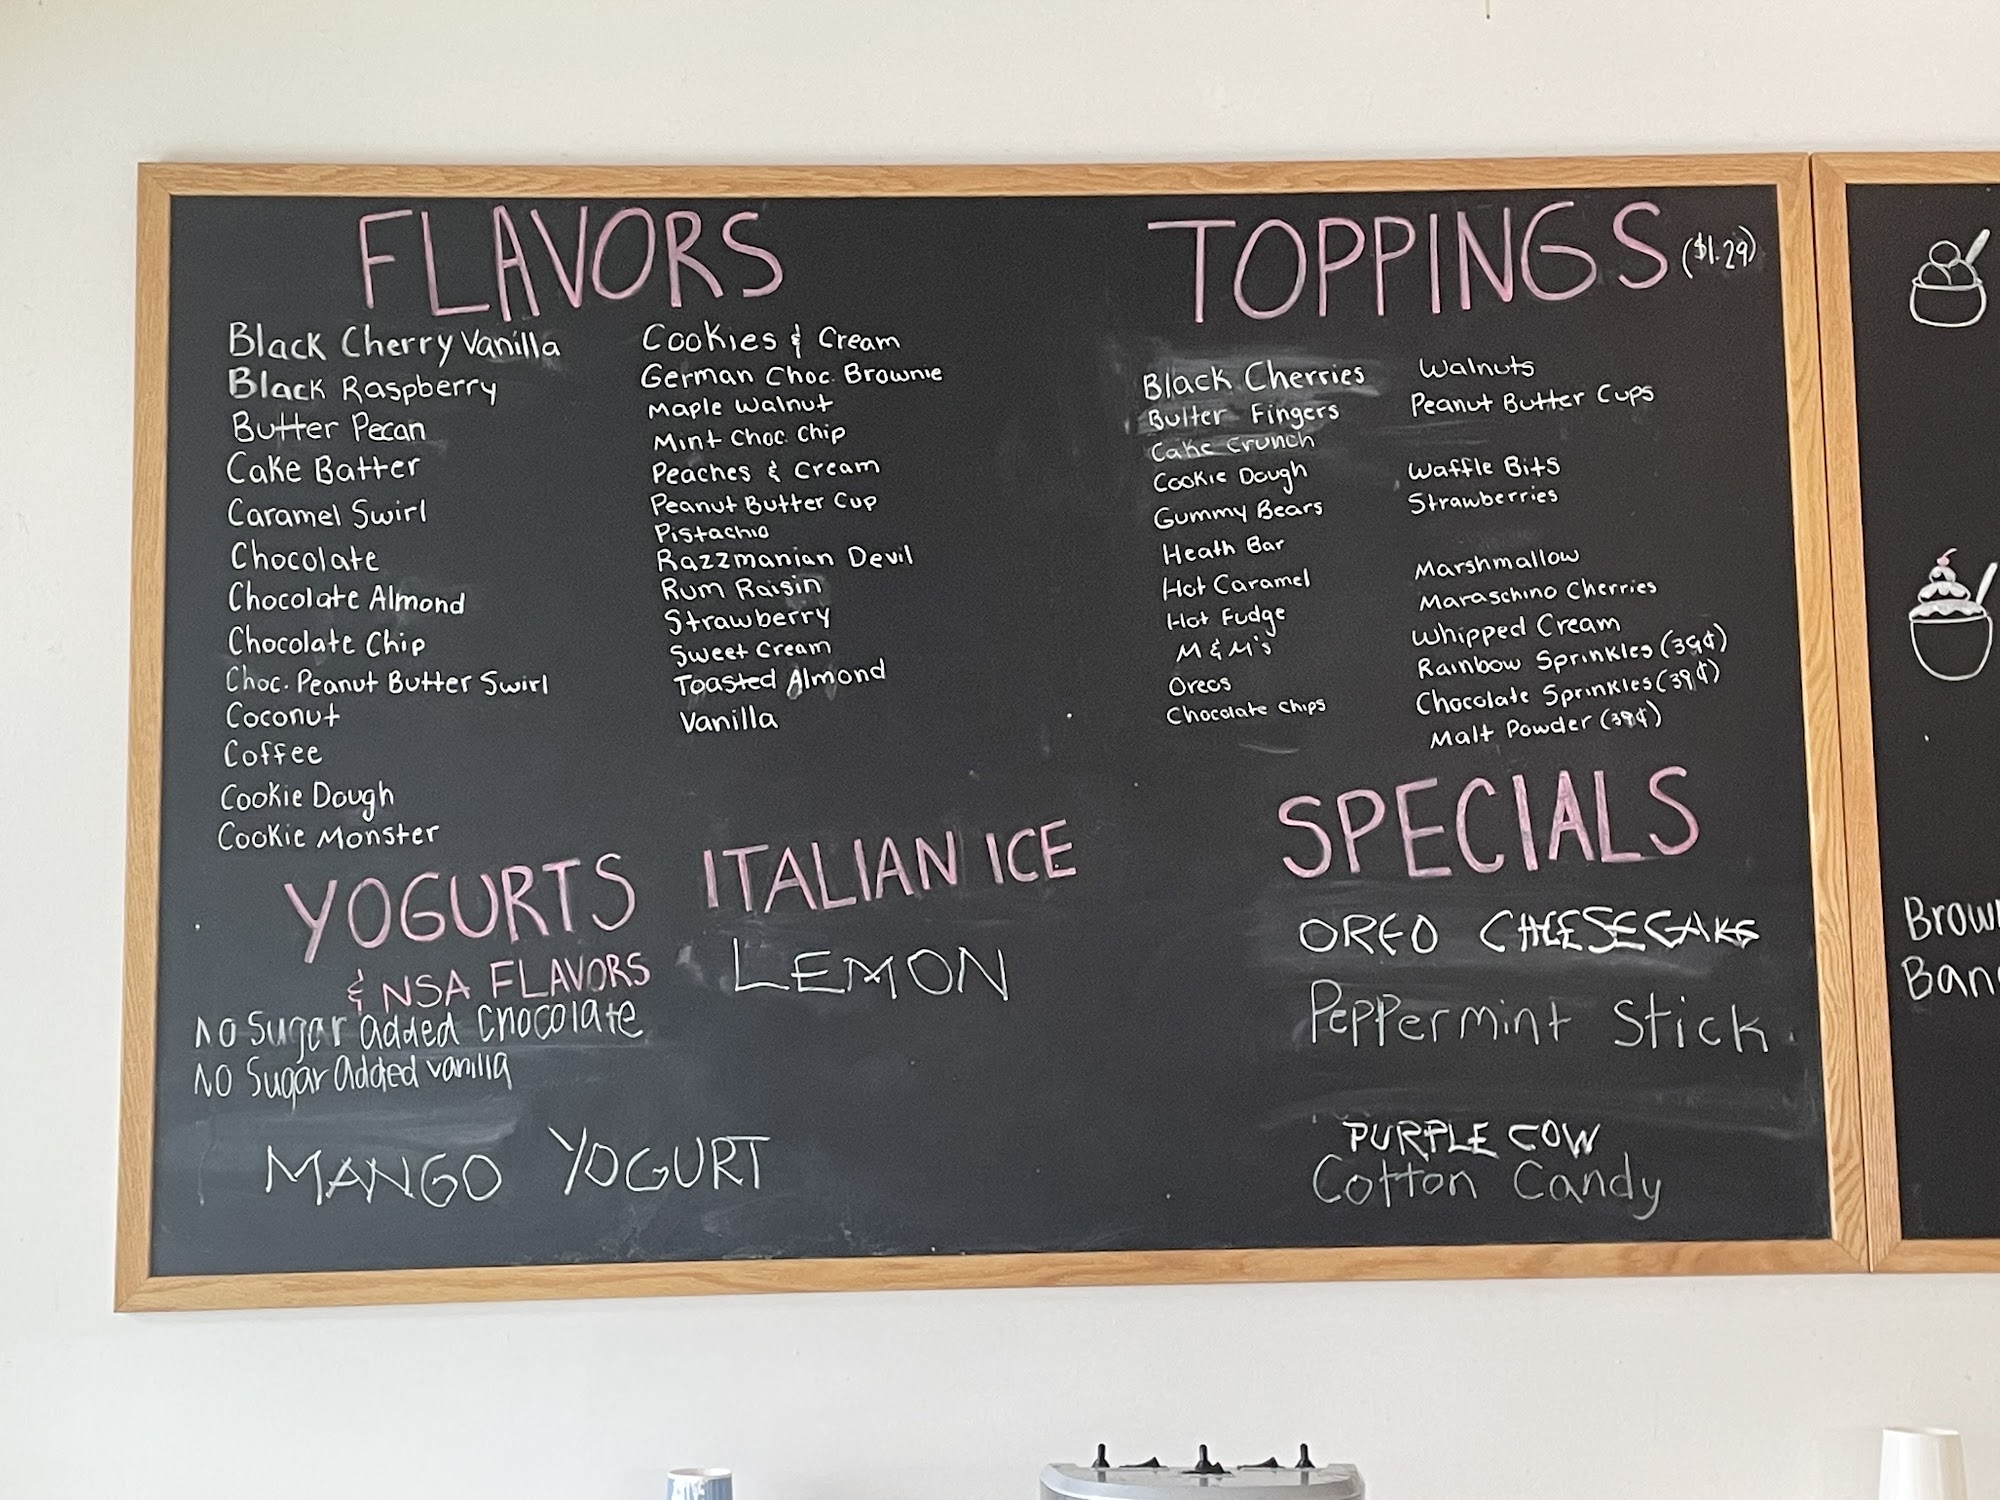 FLAVORS
Black Cherry Vanilla
Black Raspberry
Butter Pecan
Cake Batter
Caramel Swirl
Chocolate
Chocolate Almond
Chocolate Chip
Choc. Peanut Butter Swirl
Coconut
Coffee
Cookie Dough
Cookie Monster
Cookies & Cream
German Choc. Brownie
Maple Walnut
Mint Choc. Chip
Peaches & Cream
Peanut Butter Cup
Pistachio
Razzmanian Devil
Rum Raisin
Strawberry
Sweet Cream
Toasted Almond
Vanilla
YOGURTS
& NSA FLAVORS
No Sugar Added Chocolate
No Sugar Added vanilla
MANGO YOGURT
ITALIAN ICE
LEMON
TOPPINGS ($1.29)
Black Cherries
Butter Fingers
Cake Crunch
Cookie Dough
Gummy Bears
Heath Bar
Hot Caramel
Hot Fudge
M & M's
Oreos
Chocolate Chips
Walnuts
Peanut Butter Cups
Waffle Bits
Strawberries
Marshmallow
Maraschino Cherries
Whipped Cream
Rainbow Sprinkles (39¢)
Chocolate Sprinkles (39¢)
Malt Powder (39¢)
SPECIALS
OREO CHEESECAKE
Peppermint Stick
PURPLE COW
Cotton Candy